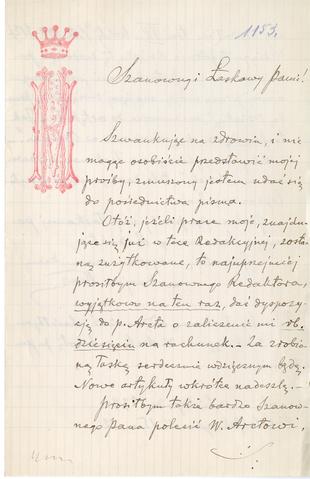 1153.
Szanowny i Łaskawy Panie!
Szwankując na zdrowiu, i nie
mogąc osobiście przedstawić mojej
prośby, zmuszony jestem udać się
do pośrednictwa pisma.
Otóż, jeżeli prace moje, znajdu-
jące się już w tece Redakcyjnej, zosta-
ną zużytkowane, to najuprzejmiej
prosiłbym Szanownego Redaktora,
wyjątkowo na ten raz, dać dyspozy-
cją do p. Arcta o zaliczenie mi rb.
dziesięciu na rachunek. – Za zrobio-
ną łaskę serdecznie wdzięcznym będę.
Nowe artykuły wkrótce nadeszlę. –
Prosiłbym także bardzo Szanow-
nego Pana polecić W. Arctowi,